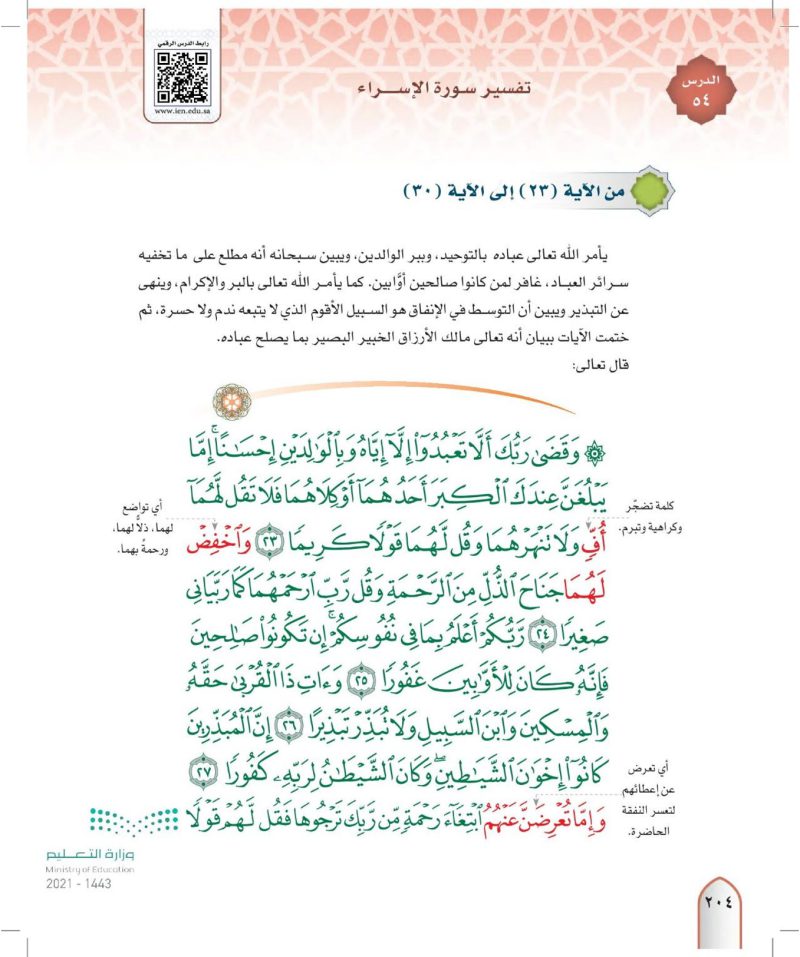 رابط الدرس الرقمي
www.ien.edu.sa
الدرس
٥٤
تفسير سورة الإســراء
من الآية (٢٣) إلى الآية (٣٠)
يأمر الله تعالى عباده بالتوحيد، وببر الوالدين، ويبين سبحانه أنه مطلع على ما تخفيه
سرائر العباد، غافر لمن كانوا صالحين أوَّابين. كما يأمر الله تعالى بالبر والإكرام، وينهى
عن التبذير ويبين أن التوسط في الإنفاق هو السبيل الأقوم الذي لا يتبعه ندم ولا حسرة، ثم
ختمت الآيات ببيان أنه تعالى مالك الأرزاق الخبير البصير بما يصلح عباده.
قال تعالى:
۞ وَقَضَىٰ رَبُّكَ أَلَّا تَعْبُدُوٓا۟ إِلَّآ إِيَّاهُ وَبِٱلْوَٰلِدَيْنِ إِحْسَـٰنًا ۚ إِمَّا
يَبْلُغَنَّ عِندَكَ ٱلْكِبَرَ أَحَدُهُمَآ أَوْ كِلَاهُمَا فَلَا تَقُل لَّهُمَآ
أُفٍّ وَلَا تَنْهَرْهُمَا وَقُل لَّهُمَا قَوْلًا كَرِيمًا ٢٣ وَٱخْفِضْ
لَهُمَا جَنَاحَ ٱلذُّلِّ مِنَ ٱلرَّحْمَةِ وَقُل رَّبِّ ٱرْحَمْهُمَا كَمَا رَبَّيَانِى
صَغِيرًا ٢٤ رَّبُّكُمْ أَعْلَمُ بِمَا فِى نُفُوسِكُمْ ۚ إِن تَكُونُوا۟ صَـٰلِحِينَ
فَإِنَّهُۥ كَانَ لِلْأَوَّٰبِينَ غَفُورًا ٢٥ وَءَاتِ ذَا ٱلْقُرْبَىٰ حَقَّهُۥ
وَٱلْمِسْكِينَ وَٱبْنَ ٱلسَّبِيلِ وَلَا تُبَذِّرْ تَبْذِيرًا ٢٦ إِنَّ ٱلْمُبَذِّرِينَ
كَانُوٓا۟ إِخْوَٰنَ ٱلشَّيَـٰطِينِ ۖ وَكَانَ ٱلشَّيْطَـٰنُ لِرَبِّهِۦ كَفُورًا ٢٧
وَإِمَّا تُعْرِضَنَّ عَنْهُمُ ٱبْتِغَآءَ رَحْمَةٍ مِّن رَّبِّكَ تَرْجُوهَا فَقُل لَّهُمْ قَوْلًا
كلمة تضجّر
وكراهية وتبرم.
أي تواضع
لهما، ذلًّا لهما،
ورحمةً بهما.
أي تعرض
عن إعطائهم
لتعسر النفقة
الحاضرة.
وزارة التعـليم
Ministry of Education
2021 - 1443
٢٠٤